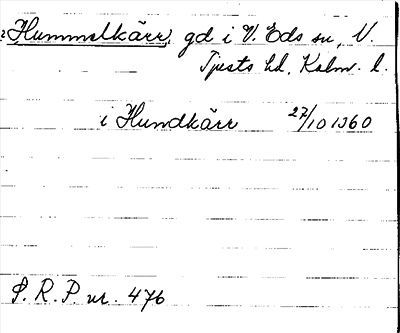 Hummelkärr, gd i V. Eds sn, N.
Tjusts hd, Kalm. l.
i Hundkärr 27/10 1360
S. R. P. nr. 476